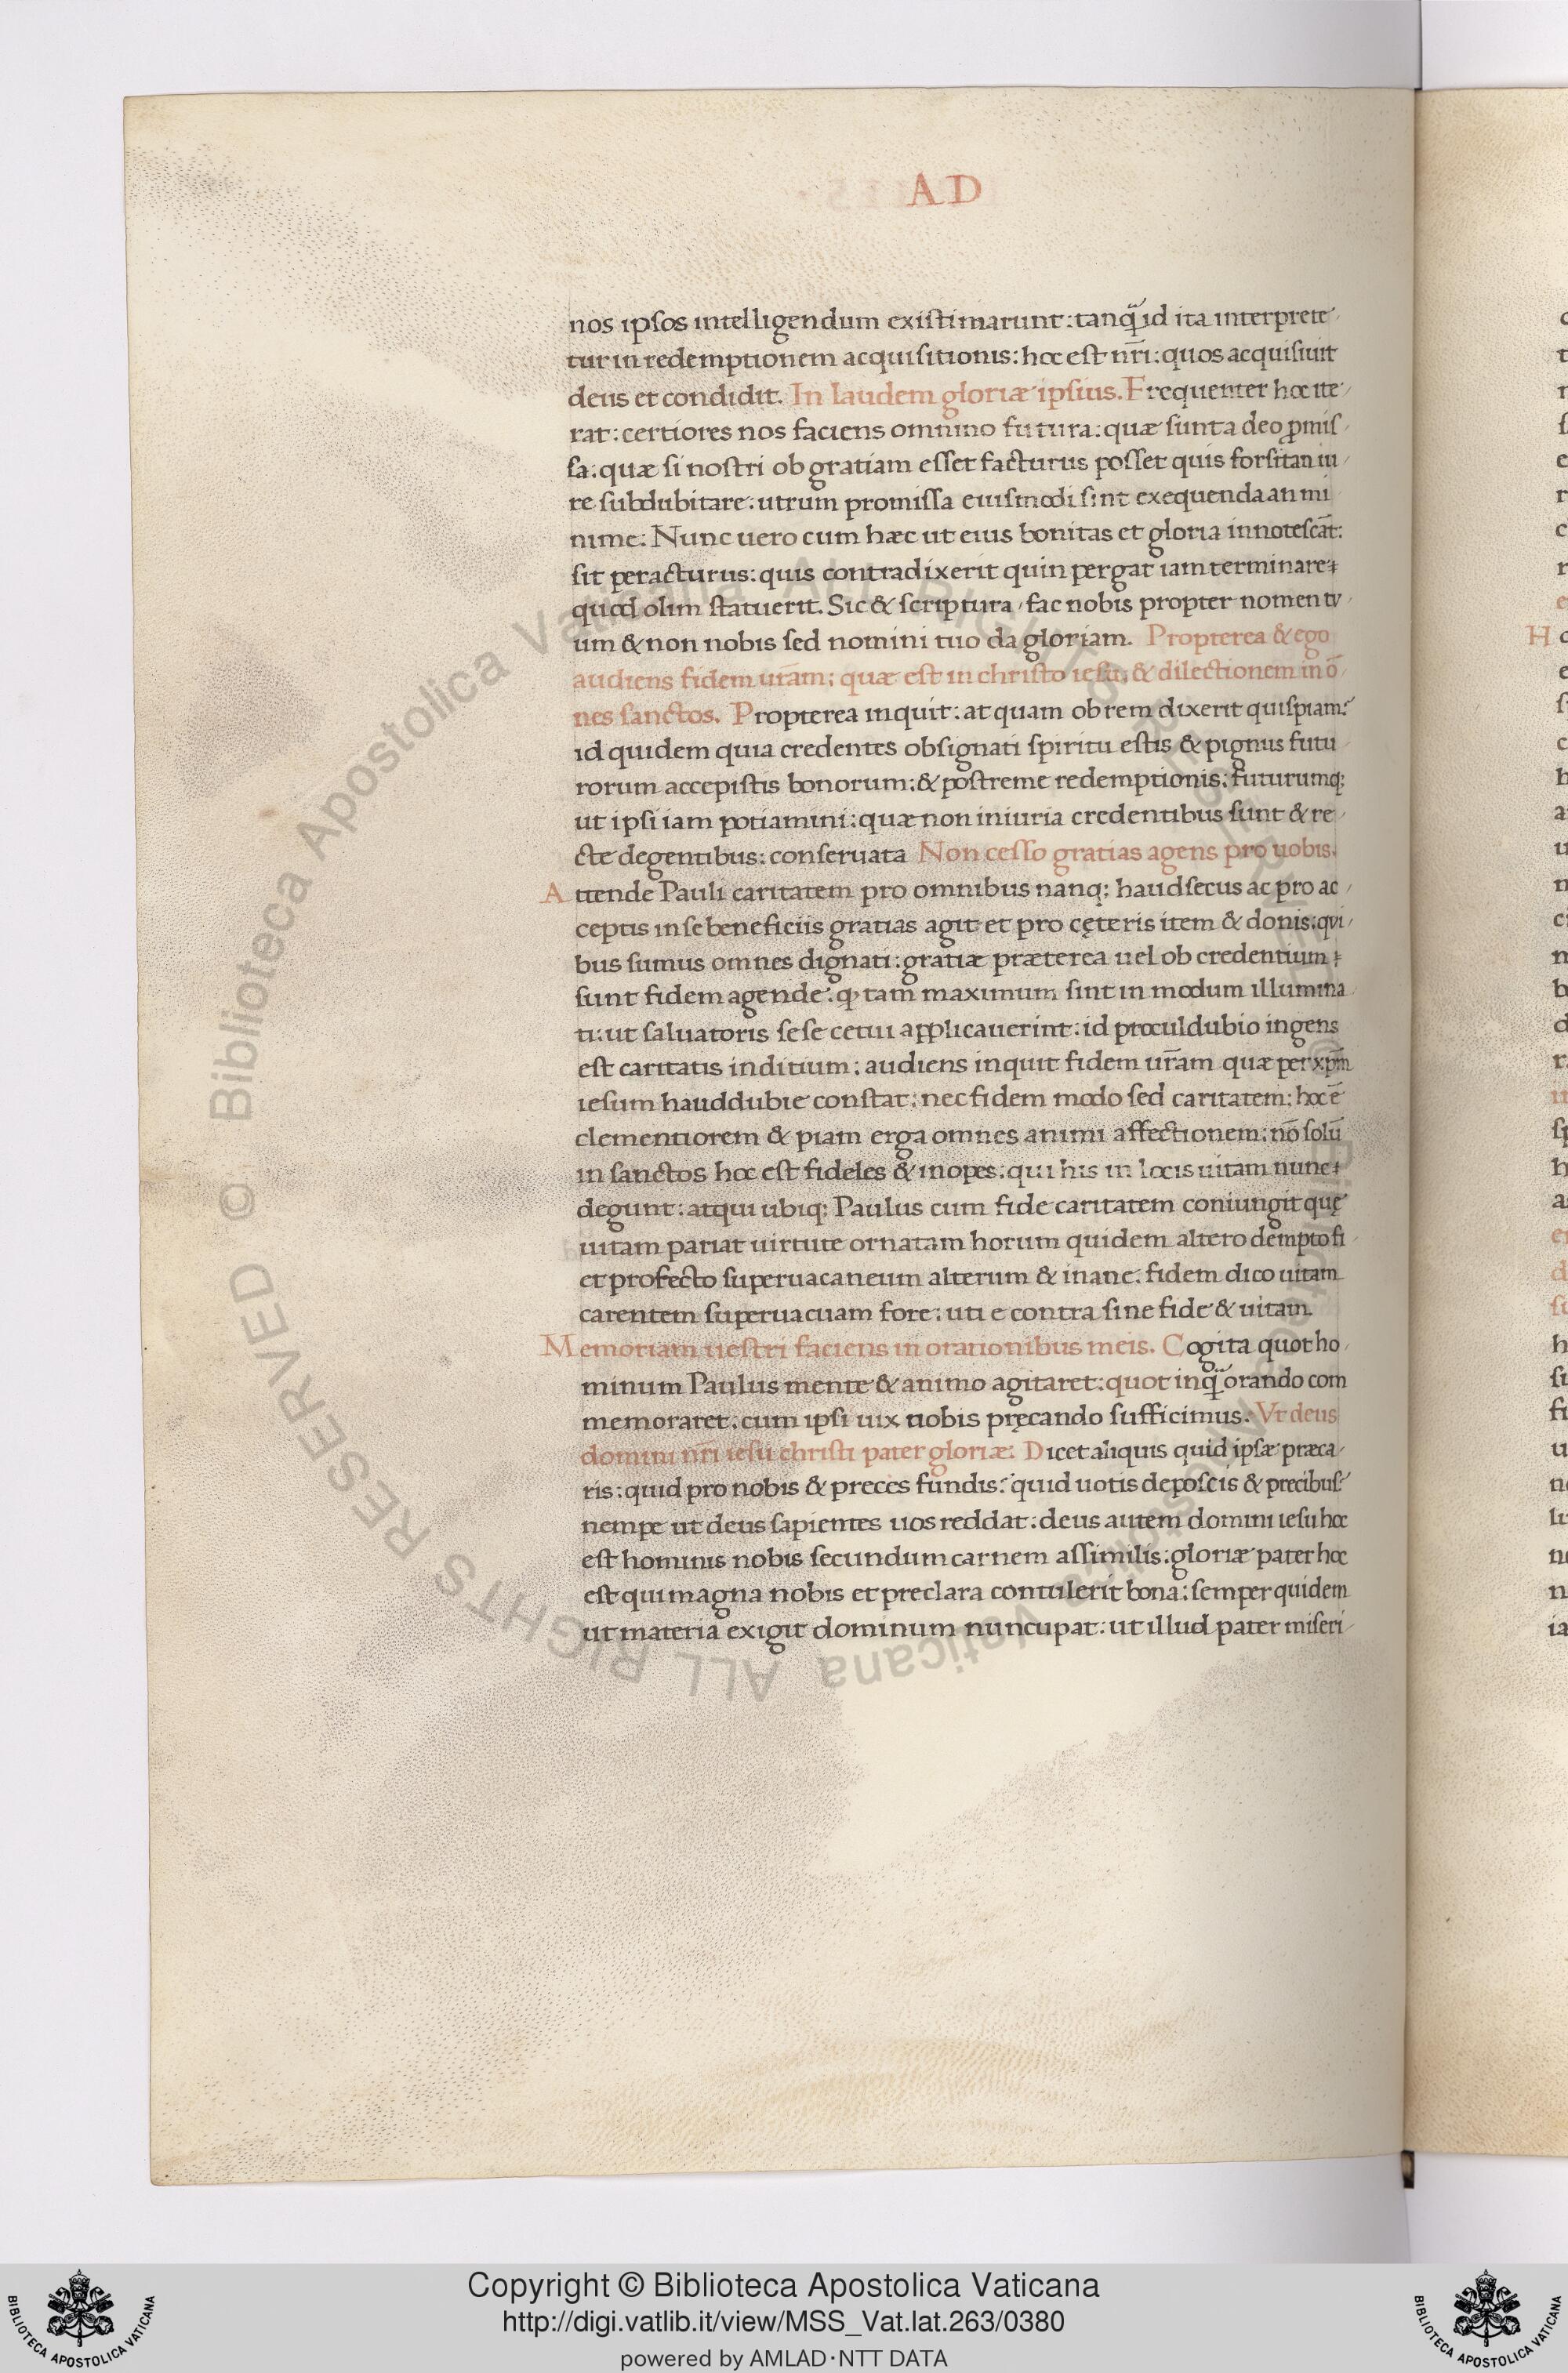 AD
nos ipsos intelligendum existimarunt: tanq̃ id ita interprete
tur in redemptionem acquisitionis: hoc est nr̄i: quos acquisiuit
deus et condidit. In laudem gloriæ ipsius. Frequenter hoc ite
rat: certiores nos faciens omnino futura: quæ sunt a deo ꝓmis
sa: quæ si nostri ob gratiam esset facturus posset quis forsitan iu
re subdubitare: utrum promissa eiusmodi sint exequenda an mi
nime: Nunc uero cum hæc ut eius bonitas et gloria innotescāt:
sit peracturus: quis contradixerit quin pergat iam terminare
quod olim statuerit. Sic & scriptura fac nobis propter nomen tu
um & non nobis sed nomini tuo da gloriam. Propterea & ego
audiens fidem ur̄am: quæ est in christo iesu: & dilectionem in ō
nes sanctos. Propterea inquit: at quam ob rem dixerit quispiam?
id quidem quia credentes obsignati spiritu estis & pignus futu
rorum accepistis bonorum: & postreme redemptionis: futurumq;
ut ipsi iam potiamini: quæ non iniuria credentibus sunt & re
cte degentibus: conseruata Non cesso gratias agens pro uobis.
Attende Pauli caritatem pro omnibus nanq; haud secus ac pro ac
ceptis in se beneficiis gratias agit et pro cęteris item & donis: qui
bus sumus omnes dignati: gratiæ præterea uel ob credentium
sunt fidem agende: ꝙ tam maximum sint in modum illumina
ti: ut saluatoris sese cetui applicauerint: id proculdubio ingens
est caritatis inditium: audiens inquit fidem ur̄am quæ per xp̄m
iesum hauddubie constat: nec fidem modo sed caritatem: hoc ē
clementiorem & piam erga omnes animi affectionem: nō solū
in sanctos hoc est fideles & inopes: qui his in locis uitam nunc
degunt: atqui ubiq; Paulus cum fide caritatem coniungit quę
uitam pariat uirtute ornatam horum quidem altero dempto fi
et profecto superuacaneum alterum & inane: fidem dico uitam
carentem superuacuam fore: uti e contra sine fide & uitam.
Memoriam uestri faciens in orationibus meis. Cogita quot ho
minum Paulus mente & animo agitaret: quot inq̃ orando com
memoraret: cum ipsi uix nobis pręcando sufficimus. Vt deus
domini nr̄i iesu christi pater gloriæ. Dicet aliquis quid ipsæ præca
ris: quid pro nobis & preces fundis? quid uotis deposcis & precibus?
nempe ut deus sapientes uos reddat: deus autem domini iesu hoc
est hominis nobis secundum carnem assimilis: gloriæ pater hoc
est qui magna nobis et preclara contulerit bona: semper quidem
ut materia exigit dominum nuncupat: ut illud pater miseri
© Biblioteca Apostolica Vaticana ALL RIGHTS RESERVED
Copyright © Biblioteca Apostolica Vaticana
http://digi.vatlib.it/view/MSS_Vat.lat.263/0380
powered by AMLAD·NTT DATA
BIBLIOTECA APOSTOLICA VATICANA
BIBLIOTECA APOSTOLICA VATICANA